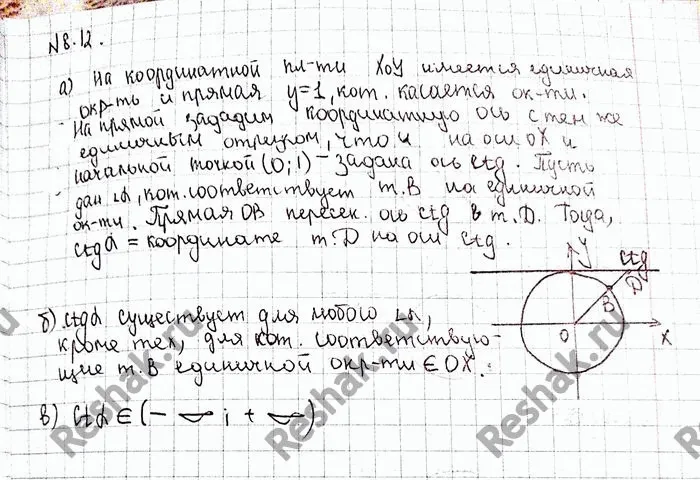 N 8.12.
а) На координатной пл-ти XOY имеется единичная
окр-ть и прямая y=1, кот. касается ок-ти.
На прямой зададим координатную ось с тем же
единичным отрезком, что и на оси OX и
начальной точкой (0;1) – задана ось ctg. Пусть
дан ∠α, кот. соответствует т.B на единичной
ок-ти. Прямая OB пересек. ось ctg в т. D. Тогда,
ctgα = координате т.D на оси ctg.
y
ctg
D
B
O
X
б) ctgα существует для любого ∠α,
кроме тех, для кот. соответствую-
щие т.B единичной окр-ти ∈ OX.
в) ctα ∈ (- ∞ ; + ∞)
Reshak.ru
Reshak.ru
Reshak.ru
Reshak.ru